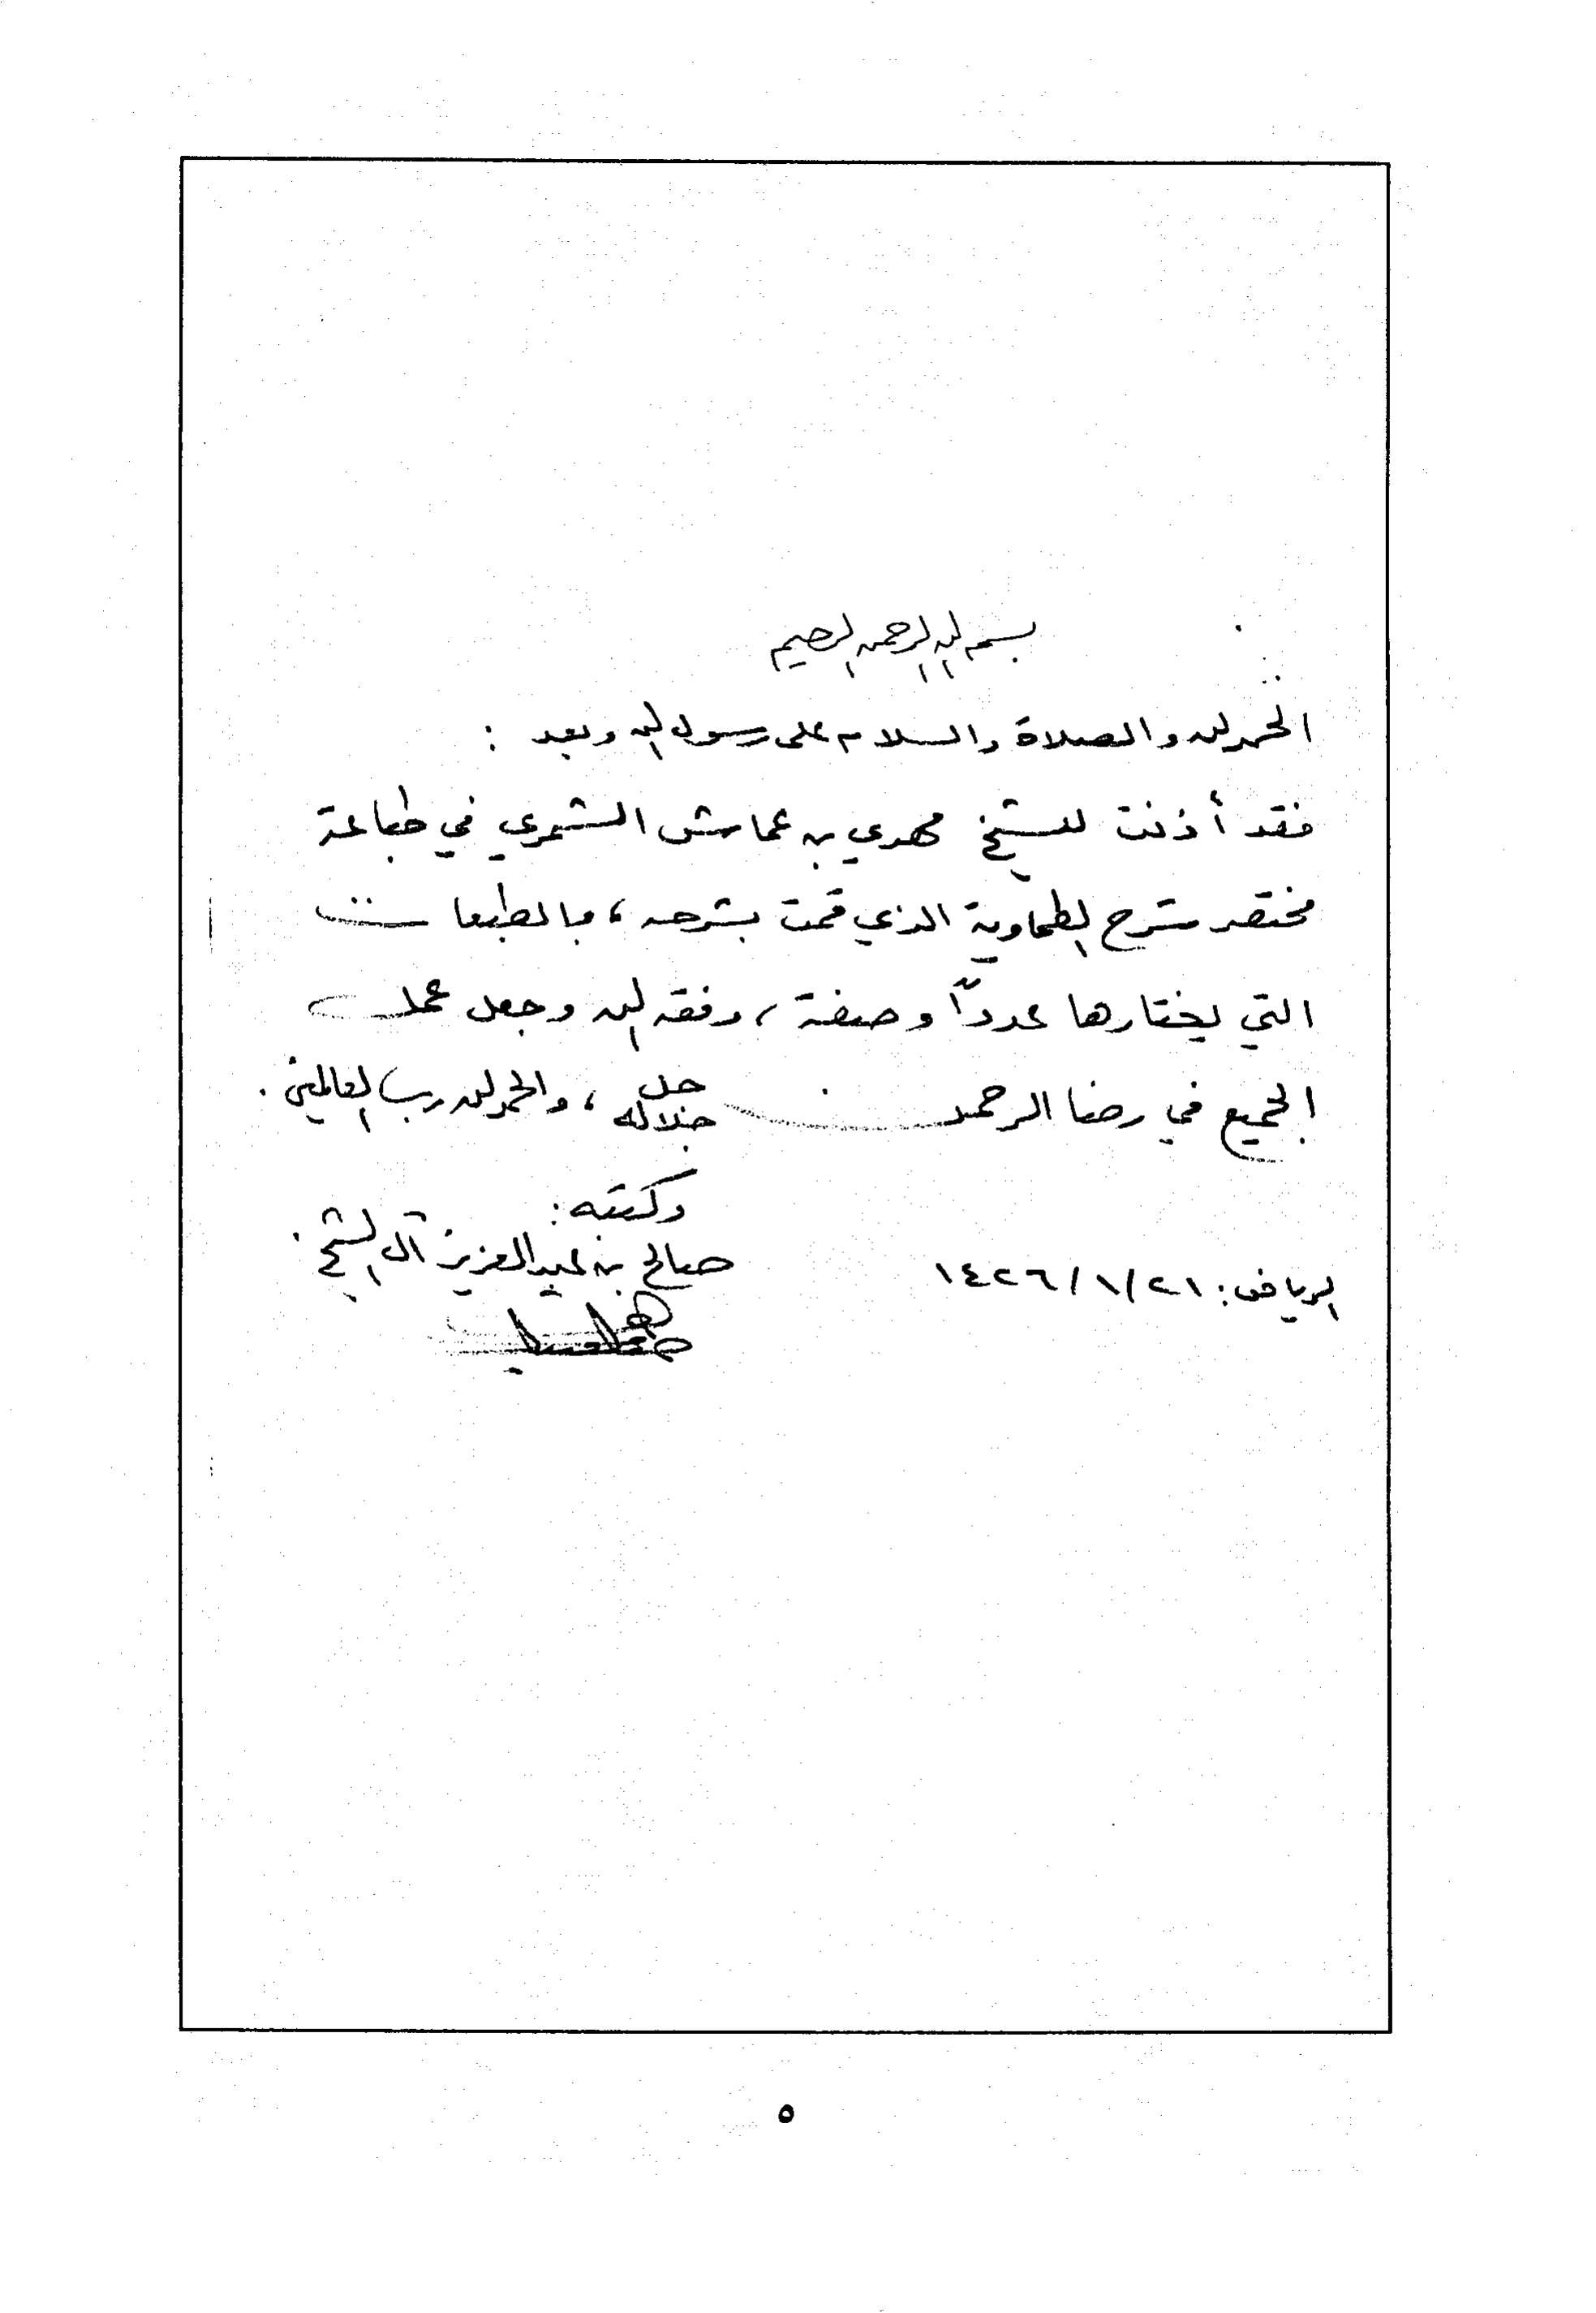 بسم الله الرحمن الرحيم
الحمد لله والصلاة والسلام على رسول الله وبعد :
فقد أذنت للشيخ مهدي بن عماش الشمري في طباعة
مختصر شرح الطحاوية الذي قمت بشرحه ، بالطبعات
التي يختارها عدداً وصفة ، وفقه الله وجعل عمل
الجميع في رضا الرحمن جل جلاله ، والحمد لله رب العالمين .
وكتبه :
صالح بن عبدالعزيز آل الشيخ .
الرياض : ٢١/ ١/ ١٤٢٦
٥